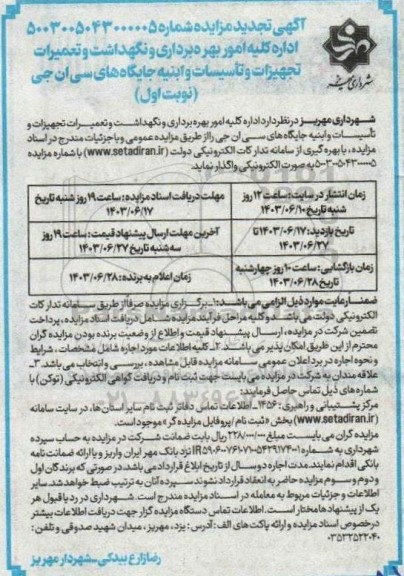 آگهی تجدید مزایده شماره ۵۰۰۳۰۰۵۰۴۳۰۰۰۰۰۵
اداره کلیه امور بهره برداری و نگهداشت و تعمیرات
تجهیزات و تأسیسات و ابنیه جایگاه های سی ان جی
(نوبت اول)
شهرداری مهریز
شهرداری مهریز در نظر دارد اداره کلیه امور بهره برداری و نگهداشت و تعمیرات تجهیزات و
تأسیسات و ابنیه جایگاه های سی ان جی را از طریق مزایده عمومی و با جزئیات مندرج در اسناد
مزایده، با بهره گیری از سامانه تدارکات الکترونیکی دولت (www.setadiran.ir) با شماره مزایده
۵۰۰۳۰۰۵۰۴۳۰۰۰۰۰۵ به صورت الکترونیکی واگذار نماید.
زمان انتشار در سایت: ساعت ۱۲ روز شنبه تاریخ ۱۴۰۳/۰۶/۱۰
مهلت دریافت اسناد مزایده: ساعت ۱۹ روز شنبه تاریخ ۱۴۰۳/۰۶/۱۷
تاریخ بازدید: ۱۴۰۳/۰۶/۱۷ تا ۱۴۰۳/۰۶/۲۷
آخرین مهلت ارسال پیشنهاد قیمت: ساعت ۱۹ روز سه شنبه تاریخ ۱۴۰۳/۰۶/۲۷
زمان بازگشایی: ساعت ۱۰ روز چهارشنبه تاریخ ۱۴۰۳/۰۶/۲۸
زمان اعلام به برنده: ۱۴۰۳/۰۶/۲۸
ضمنا رعایت موارد ذیل الزامی می باشد: ۱_ برگزاری مزایده صرفا از طریق سامانه تدارکات
الکترونیکی دولت می باشد و کلیه مراحل فرآیند مزایده شامل دریافت اسناد مزایده، پرداخت
تضمین شرکت در مزایده، ارسال پیشنهاد قیمت و اطلاع از وضعیت برنده بودن مزایده گران
محترم از این طریق امکان پذیر می باشد. ۲_ کلیه اطلاعات مورد اجاره شامل مشخصات، شرایط
و نحوه اجاره در برد اعلان عمومی سامانه مزایده قابل مشاهده، بررسی و انتخاب می باشد. ۳_
علاقه مندان به شرکت در مزایده می بایست جهت ثبت نام و دریافت گواهی الکترونیکی (توکن) با
شماره های ذیل تماس حاصل فرمایند:
مرکز پشتیبانی و راهبری: ۱۴۵۶_ اطلاعات تماس دفاتر ثبت نام سایر استان ها، در سایت سامانه
(www.setadiran.ir) بخش «ثبت نام / پروفایل مزایده گر» موجود است.
مزایده گران می بایست مبلغ ۲۲۸/۰۰۰/۰۰۰ ریال بابت ضمانت شرکت در مزایده به حساب سپرده
شهرداری به شماره نزد بانک مهر ایران واریز و یا ارائه ضمانت نامه
بانکی اقدام نمایند. مدت اجاره دو سال از تاریخ ابلاغ قرارداد می باشد در صورتی که برندگان اول
و دوم و سوم مزایده حاضر به انعقاد قرارداد نشوند سپرده آنان به ترتیب ضبط خواهد شد. سایر
اطلاعات و جزئیات مربوط به معامله در اسناد مزایده مندرج است. شهرداری در رد یا قبول هر
یک از پیشنهادها مختار است. اطلاعات تماس دستگاه مزایده گزار جهت دریافت اطلاعات بیشتر
در خصوص اسناد مزایده و ارائه پاکت های الف: آدرس: یزد، مهریز، میدان شهید صدوقی و تلفن:
۰۳۵۳۲۵۲۲۰۴۰
رضا زارع بیدکی_ شهردار مهریز